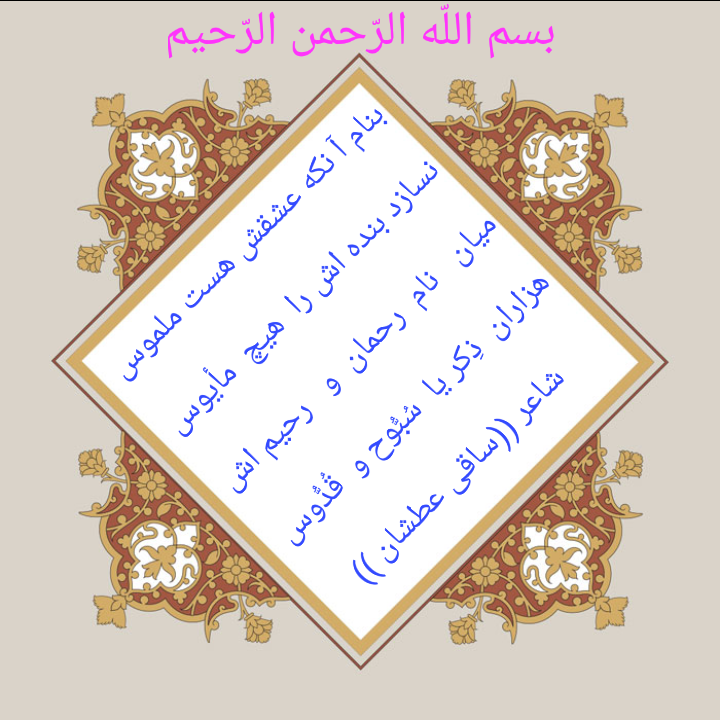 بسم اللّه الرّحمن الرّحیم
بنام آنکه عشقش هست ملموس
نسازد بنده اش را هیچ مأیوس
میان نام رحمان و رحیم اش
هزاران ذِکر یا سُبّوح و قُدّوس
شاعر ((ساقی عطشان))